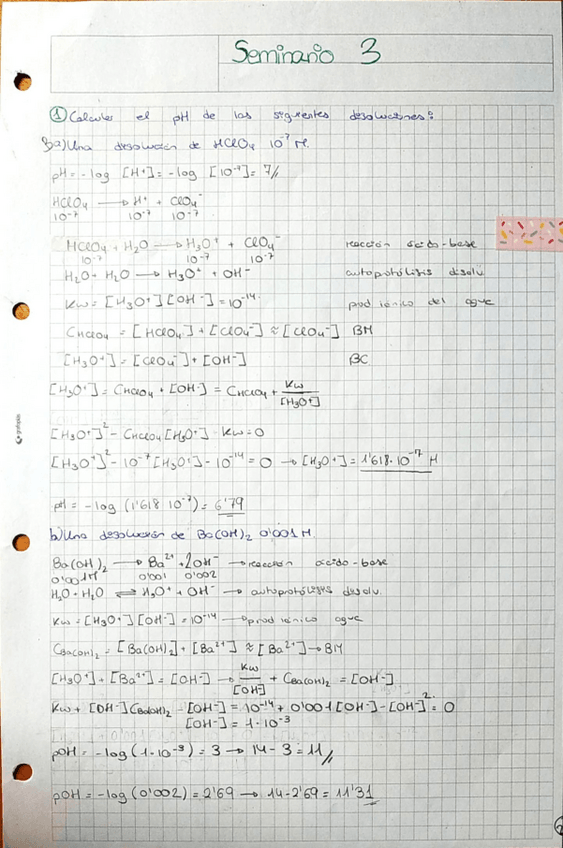 Seminario 3
① Calcular el pH de las siguientes disoluciones:
a) Una disolución de HClO₄ 10⁻⁷ M.
pH = -log [H⁺] = -log [10⁻⁷] = 7//
HClO₄ → H⁺ + ClO₄⁻
10⁻⁷ 10⁻⁷ 10⁻⁷
HClO₄ + H₂O → H₃O⁺ + ClO₄⁻ reacción ácido-base
10⁻⁷ 10⁻⁷ 10⁻⁷
H₂O + H₂O → H₃O⁺ + OH⁻ autoprotólisis disolv
Kw = [H₃O⁺][OH⁻] = 10⁻¹⁴ prod iónico del agua
CHClO₄ = [HClO₄] + [ClO₄⁻] ≈ [ClO₄⁻] BM
[H₃O⁺] = [ClO₄⁻] + [OH⁻] BC
[H₃O⁺] = CHClO₄ + [OH⁻] = CHClO₄ + Kw/[H₃O⁺]
[H₃O⁺]² - CHClO₄ [H₃O⁺] - Kw = 0
[H₃O⁺]² - 10⁻⁷ [H₃O⁺] - 10⁻¹⁴ = 0 → [H₃O⁺] = 1'618·10⁻⁷ M
pH = -log (1'618 10⁻⁷) = 6'79
b) Una disolución de Ba(OH)₂ 0'001 M.
Ba(OH)₂ → Ba²⁺ + 2OH⁻ → reacción ácido-base
0'001M 0'001 0'002
H₂O + H₂O ⇌ H₃O⁺ + OH⁻ → autoprotólisis disolv.
Kw = [H₃O⁺][OH⁻] = 10⁻¹⁴ → prod iónico agua
CBa(OH)₂ = [Ba(OH)₂] + [Ba²⁺] ≈ [Ba²⁺] → BM
[H₃O⁺] + [Ba²⁺] = [OH⁻] → Kw/[OH] + CBa(OH)₂ = [OH⁻]
Kw + [OH⁻]CBa(OH)₂ - [OH⁻] = 10⁻¹⁴ + 0'001[OH⁻] - [OH⁻]² = 0
[OH⁻] = 1·10⁻³
pOH = -log (1·10⁻³) = 3 → 14 - 3 = 11//
pOH = -log (0'002) = 2'69 → 14 - 2'69 = 11'31